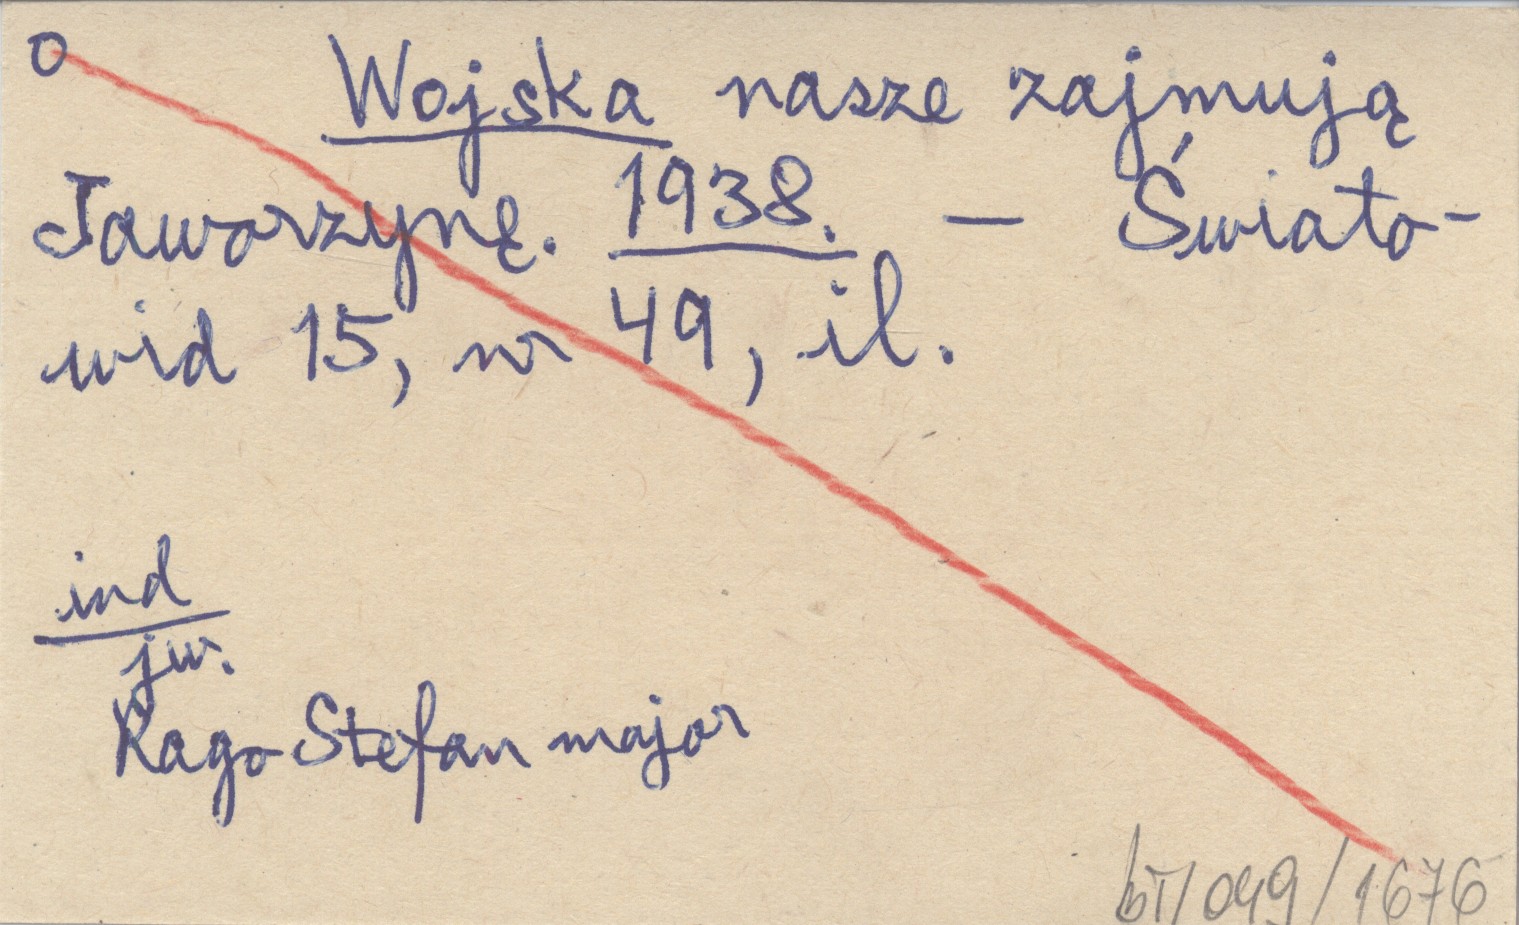 o Wojska nasze zajmują
Jaworzynę. 1938. — Świato-
wid 15, nr 49, il.
ind
jw.
Rago Stefan major
bT/049/1676